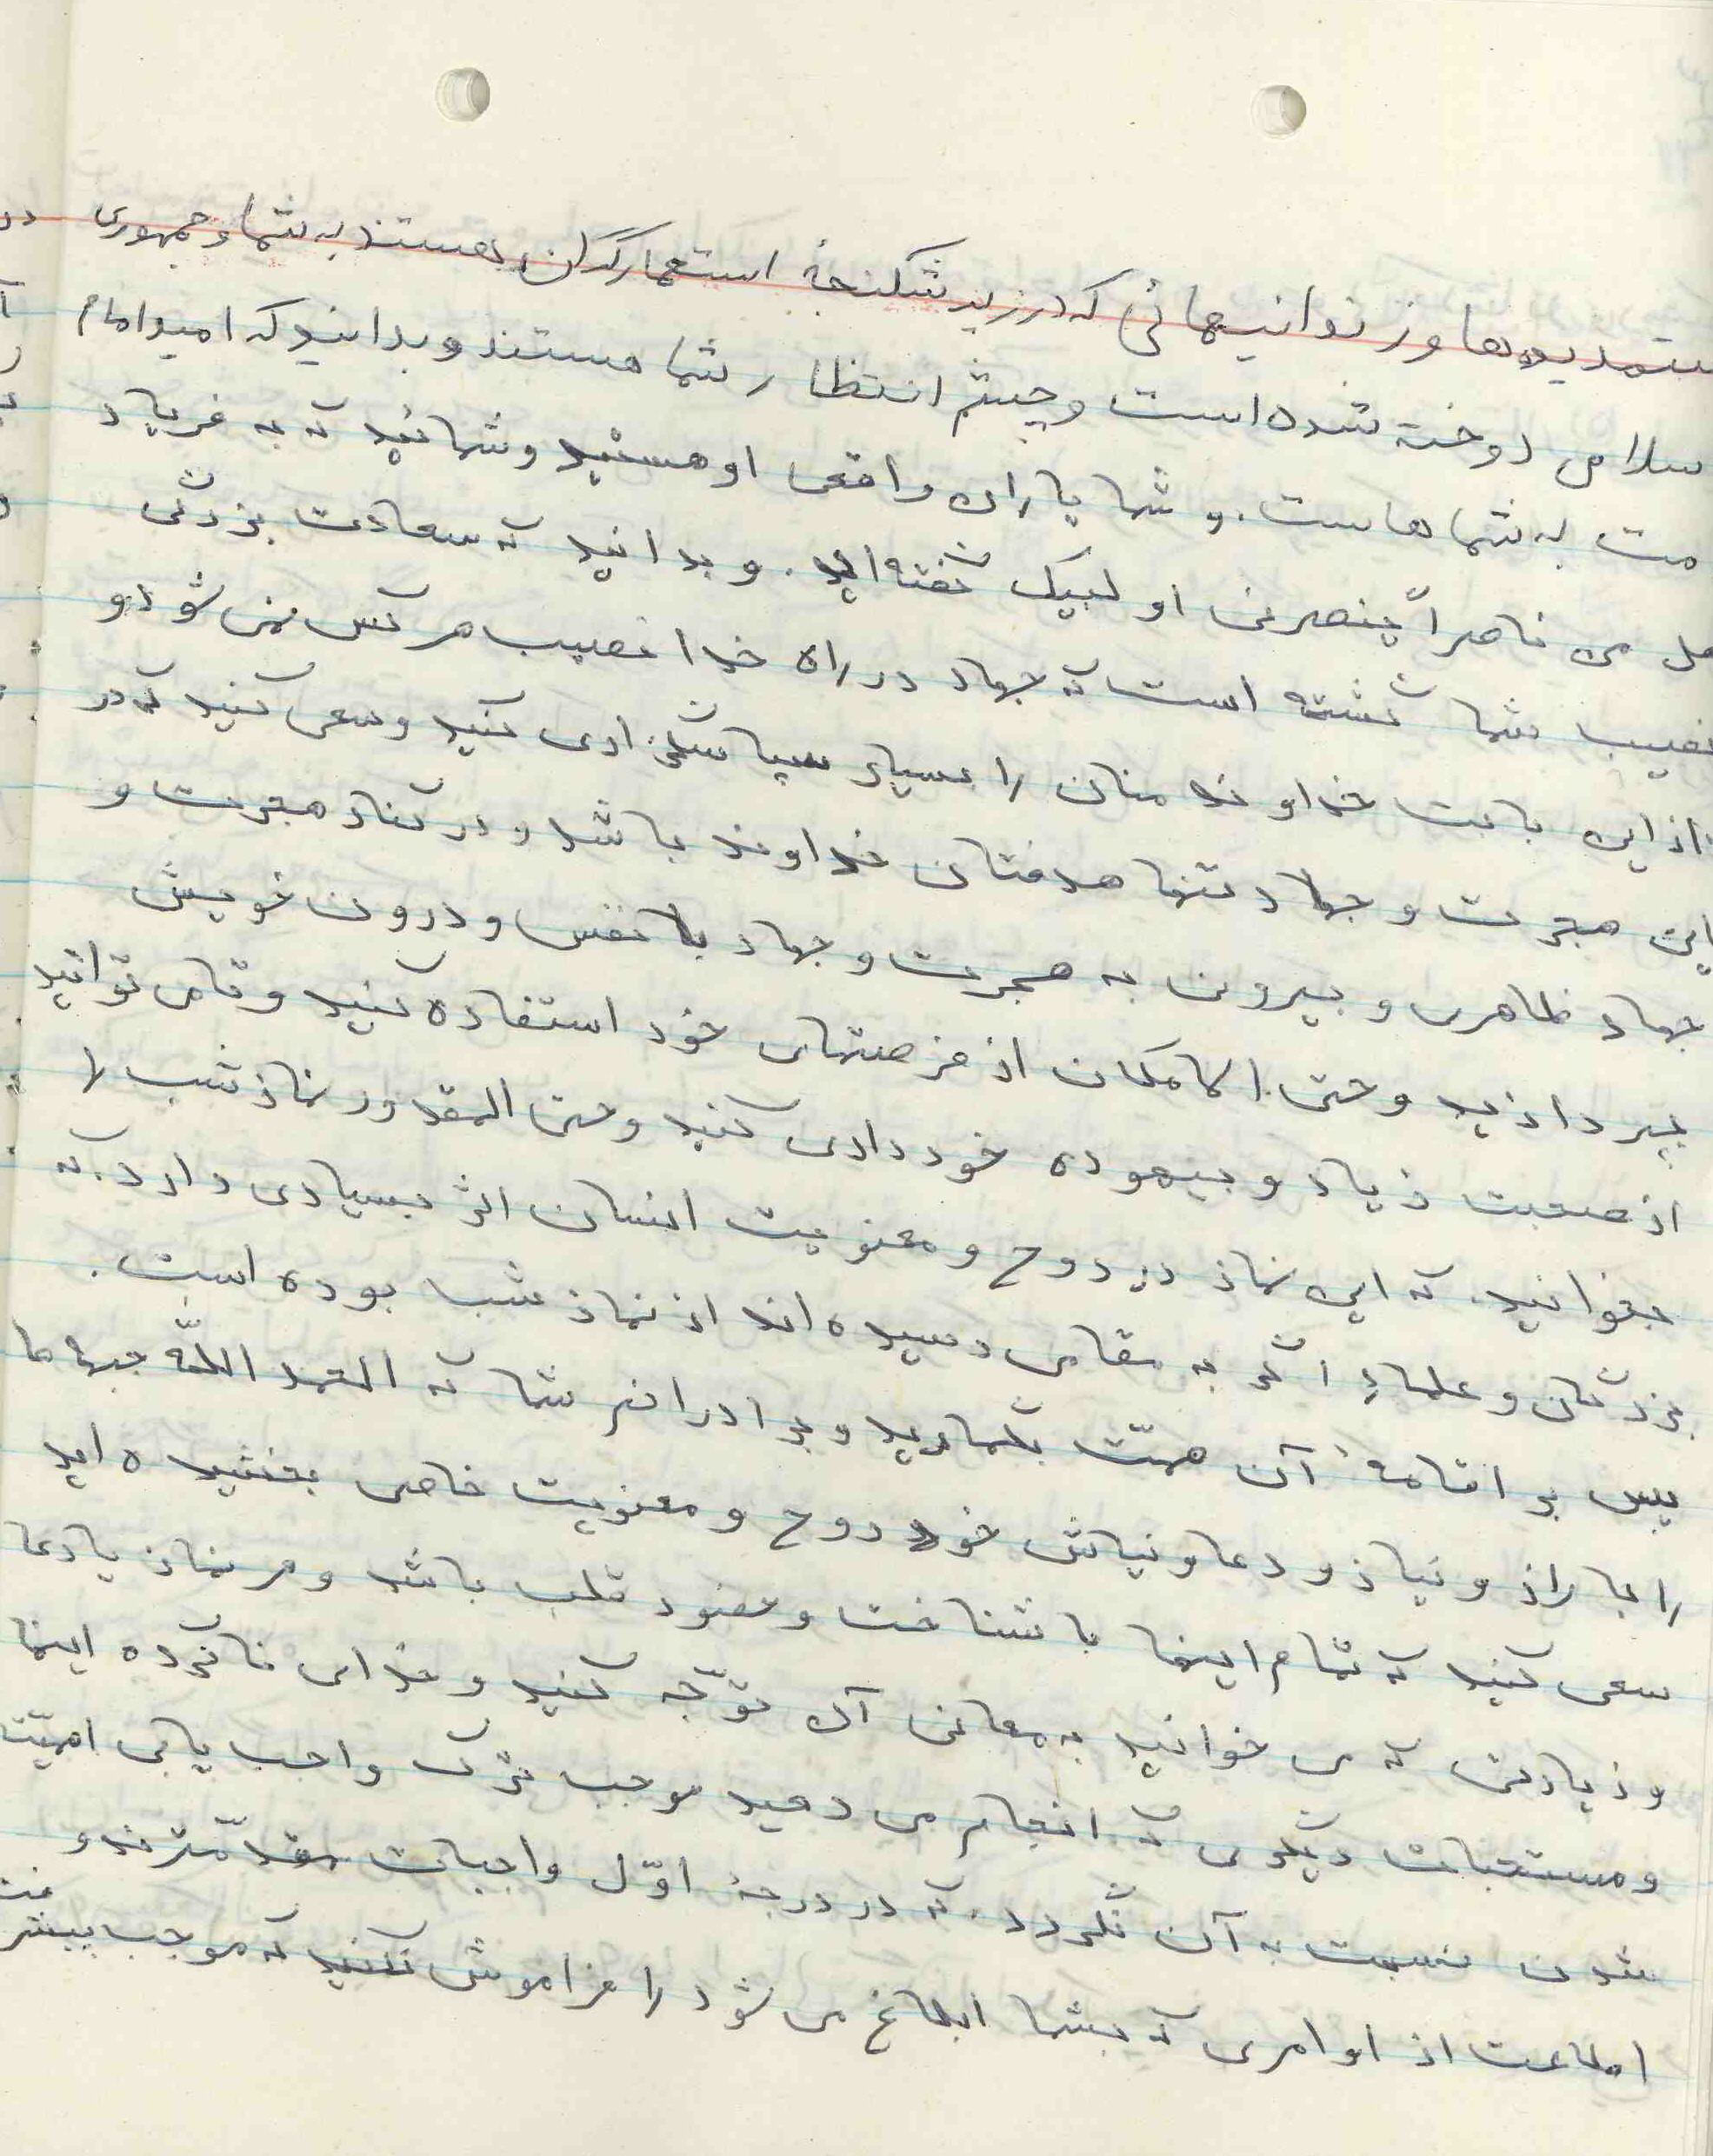 ستمدیده‌ها و زندانیهائی که در زیر شکنجهٔ استعمارگران هستند به شما و جمهوری
سلامی دوخته شده است و چشم انتظار شما هستند و بدانید که امید امام
مت به شماهاست. و شما یاران واقعی او هستید و شمائید که به فریاد
هل من ناصراً ینصرنی او لبیک گفته‌اید. و بدانید که سعادت بزرگی
نصیب شما گشته است که جهاد در راه خدا نصیب هر کس نمی شود و
از این بابت خداوند منان را بسیار سپاسگزاری کنید و سعی کنید که در
این هجرت و جهاد تنها هدفتان خداوند باشد و در کنار هجرت و
جهاد ظاهری و بیرونی به هجرت و جهاد با نفس و درون خویش
بپردازید و حتی الامکان از فرصتهای خود استفاده کنید و تا می توانید
از صحبت زیاد و بیهوده خودداری کنید و حتی المقدور نماز شب را
بخوانید. که این نماز در روح و معنویت انسان اثر بسیاری دارد. که
بزرگان و علماء اگر به مقامی رسیده‌اند از نماز شب بوده است.
پس بر اقامهٔ آن همّت بگمارید و برادرانم شما که الحمد اللّه جبهه ها
را با راز و نیاز و دعا و نیایش خود روح و معنویت خاصی بخشیده اید
سعی کنید که تمام اینها با شناخت و حضور قلب باشد و هر نماز یا دعا
و زیارتی که می خوانید به معانی آن توّجه کنید و خدای ناکرده اینها
و مستحبات دیگری که انجام می دهید موجب ترک واجب یا بی اهمیّت
شدن نسبت به آن نگردد. که در درجهٔ اوّل واجبات مقدّمترند و
اطاعت از اوامری که بشما ابلاغ می شود را فراموش نکنید که موجب پیشرفت